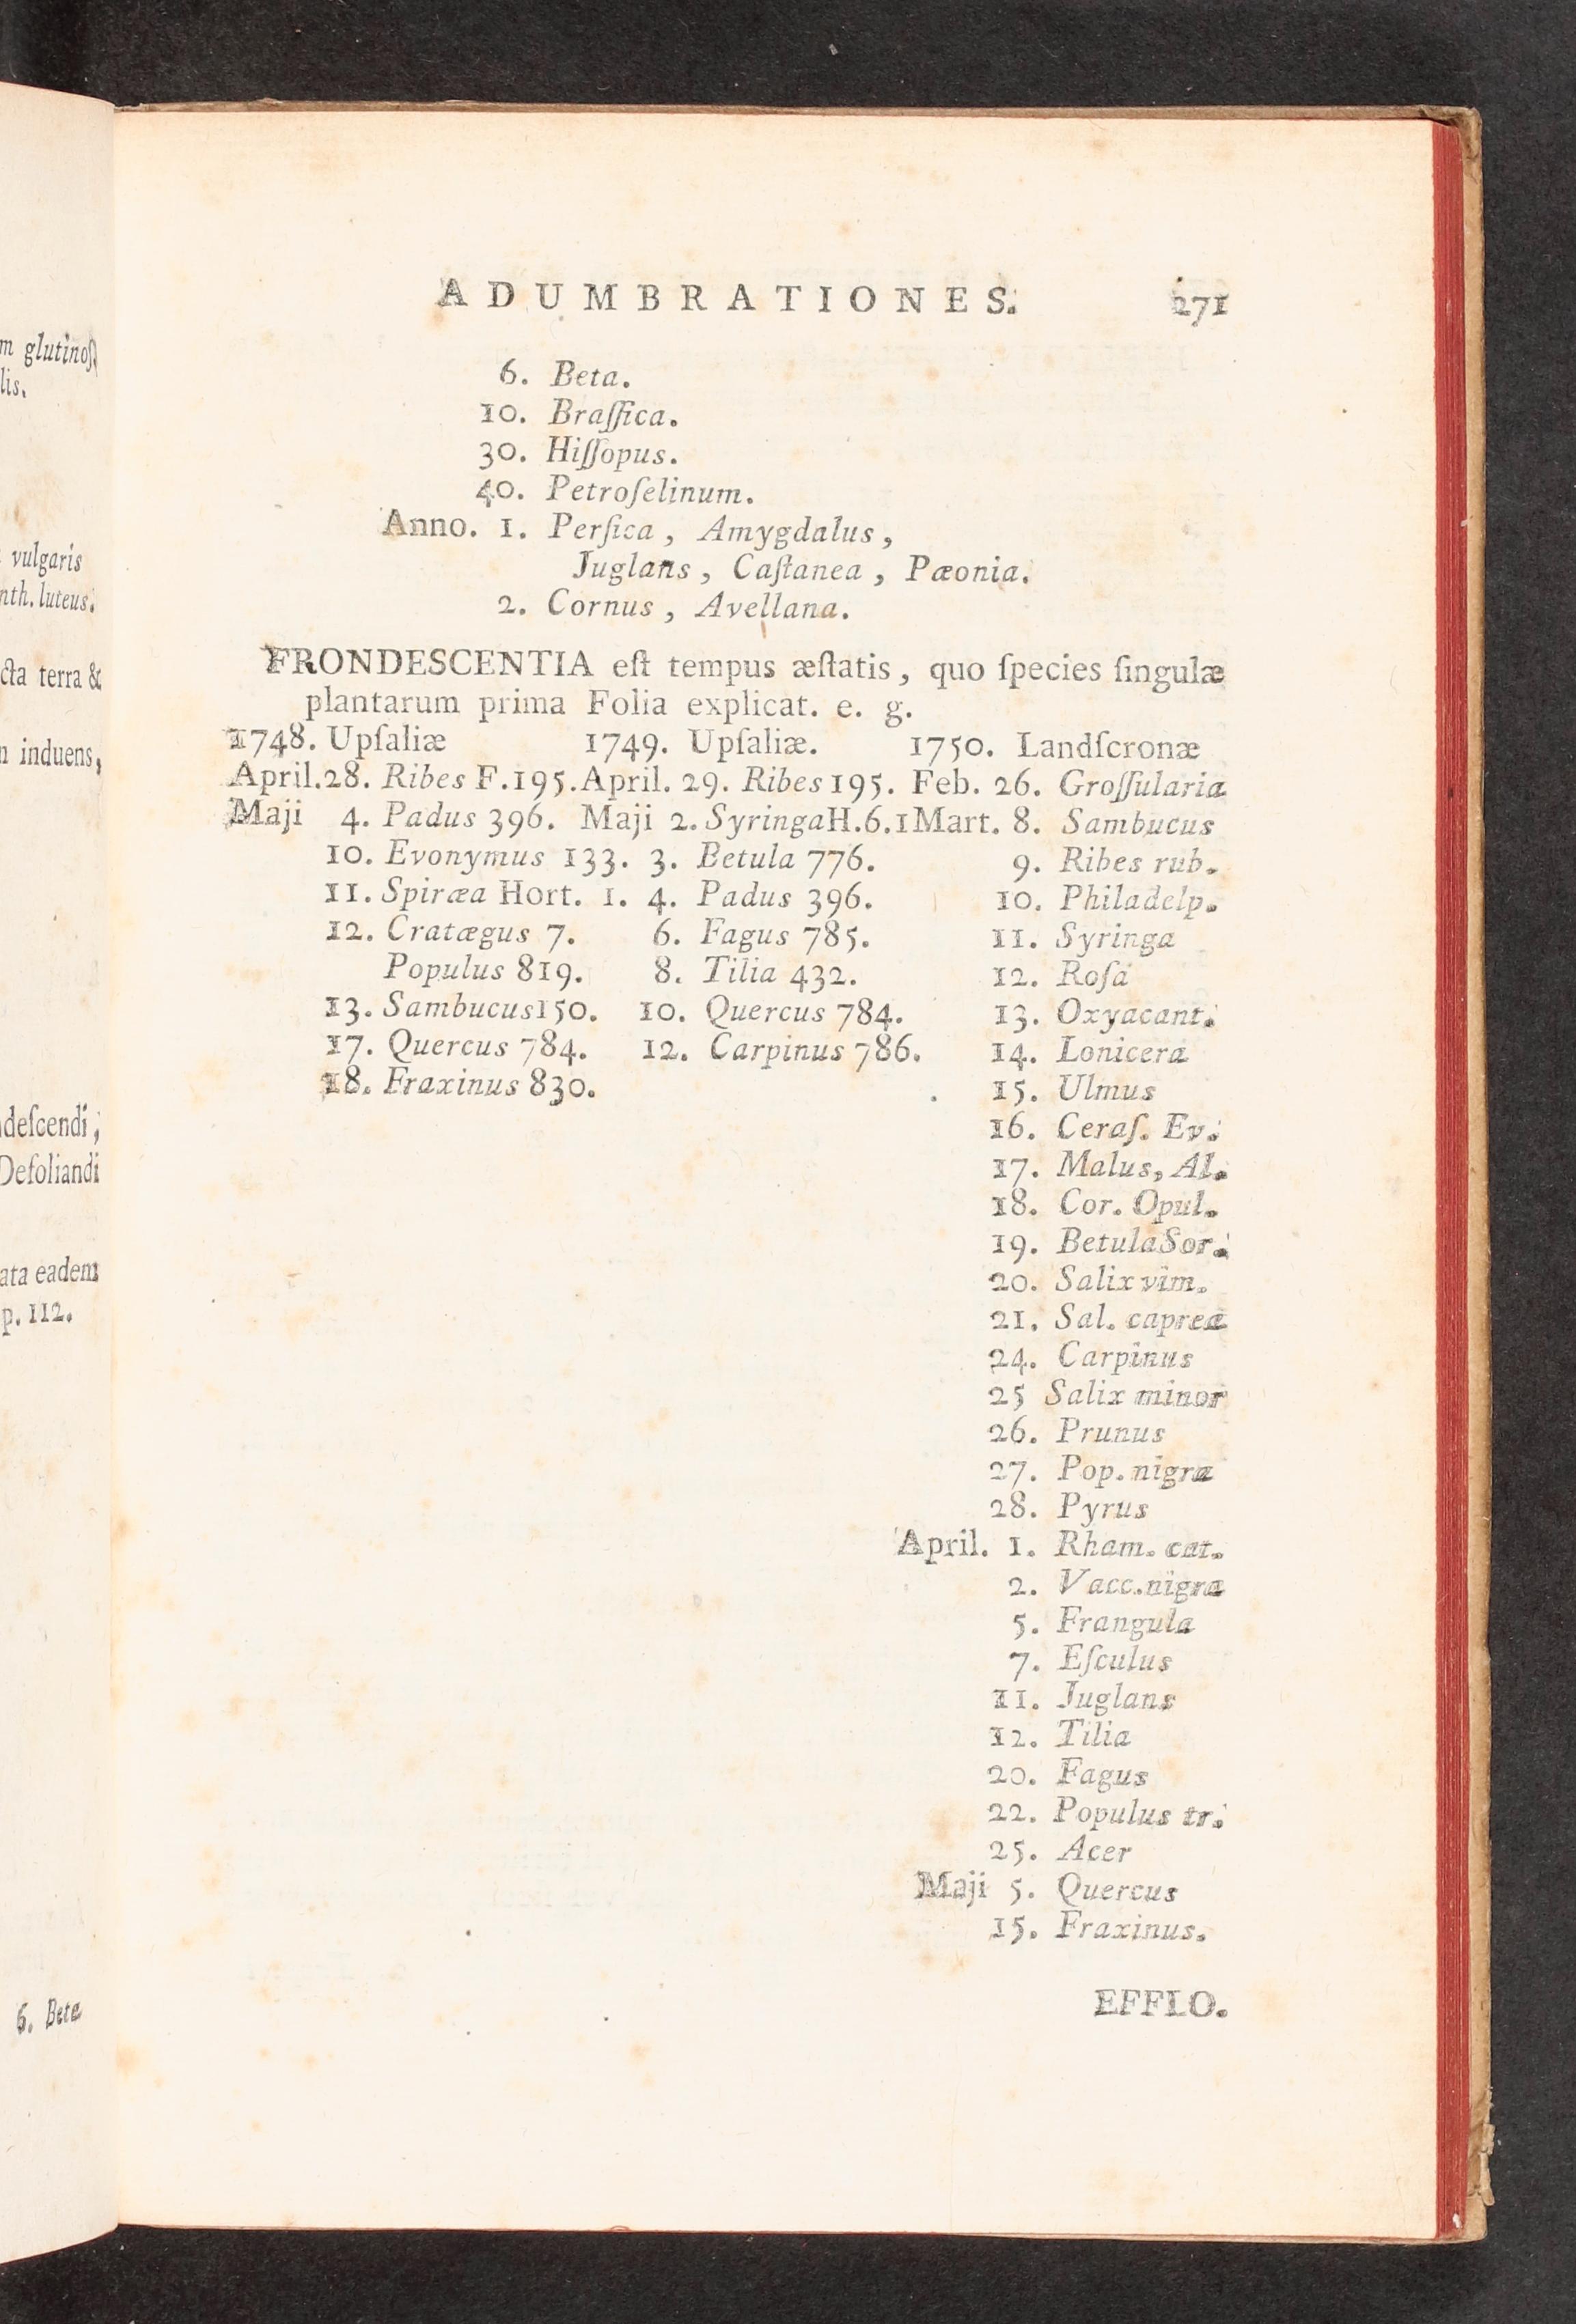 m glutinoſ
lis.
vulgaris
nth. luteus.
cta terra &
n induens,
deſcendi,
Defoliandi
ata eadem
p. 112.
6. Beta
ADUMBRATIONES. 271
6. Beta.
10. Braſſica.
30. Hiſſopus.
40. Petroſelinum.
Anno. 1. Perſica, Amygdalus,
Juglans, Caſtanea, Pæonia.
2. Cornus, Avellana.
FRONDESCENTIA eſt tempus æſtatis, quo ſpecies ſingulæ
plantarum prima Folia explicat. e. g.
1748. Upſaliæ 1749. Upſaliæ. 1750. Landſcronæ
April. 28. Ribes F. 195. April. 29. Ribes 195. Feb. 26. Groſſularia
Maji 4. Padus 396. Maji 2. Syringa H. 6. 1 Mart. 8. Sambucus
10. Evonymus 133. 3. Betula 776. 9. Ribes rub.
11. Spiræa Hort. 1. 4. Padus 396. 10. Philadelp.
12. Cratægus 7. 6. Fagus 785. 11. Syringa
Populus 819. 8. Tilia 432. 12. Roſa
13. Sambucus 150. 10. Quercus 784. 13. Oxyacant.
17. Quercus 784. 12. Carpinus 786. 14. Lonicera
18. Fraxinus 830. 15. Ulmus
16. Ceraſ. Ev.
17. Malus, Al.
18. Cor. Opul.
19. Betula Sor.
20. Salix vim.
21. Sal. caprea
24. Carpinus
25 Salix minor
26. Prunus
27. Pop. nigra
28. Pyrus
April. 1. Rham. cat.
2. Vacc. nigra
5. Frangula
7. Eſculus
11. Juglans
12. Tilia
20. Fagus
22. Populus tr.
25. Acer
Maji 5. Quercus
15. Fraxinus.
EFFLO.